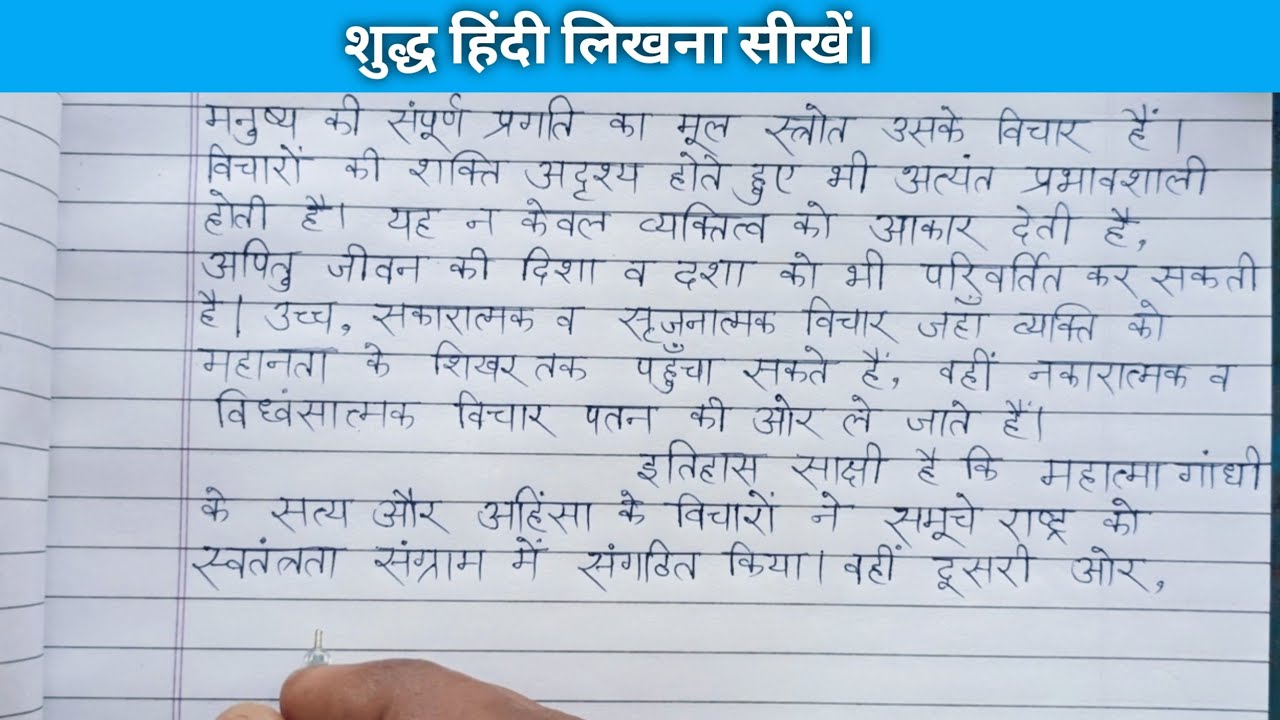 शुद्ध हिंदी लिखना सीखें।
मनुष्य की संपूर्ण प्रगति का मूल स्त्रोत उसके विचार हैं।
विचारों की शक्ति अदृश्य होते हुए भी अत्यंत प्रभावशाली
होती है। यह न केवल व्यक्तित्व को आकार देती है,
अपितु जीवन की दिशा व दशा को भी परिवर्तित कर सकती
है। उच्च, सकारात्मक व सृजनात्मक विचार जहाँ व्यक्ति को
महानता के शिखर तक पहुँचा सकते हैं, वहीं नकारात्मक व
विध्वंसात्मक विचार पतन की ओर ले जाते हैं।
इतिहास साक्षी है कि महात्मा गांधी
के सत्य और अहिंसा के विचारों ने समूचे राष्ट्र को
स्वतंत्रता संग्राम में संगठित किया। वहीं दूसरी ओर,